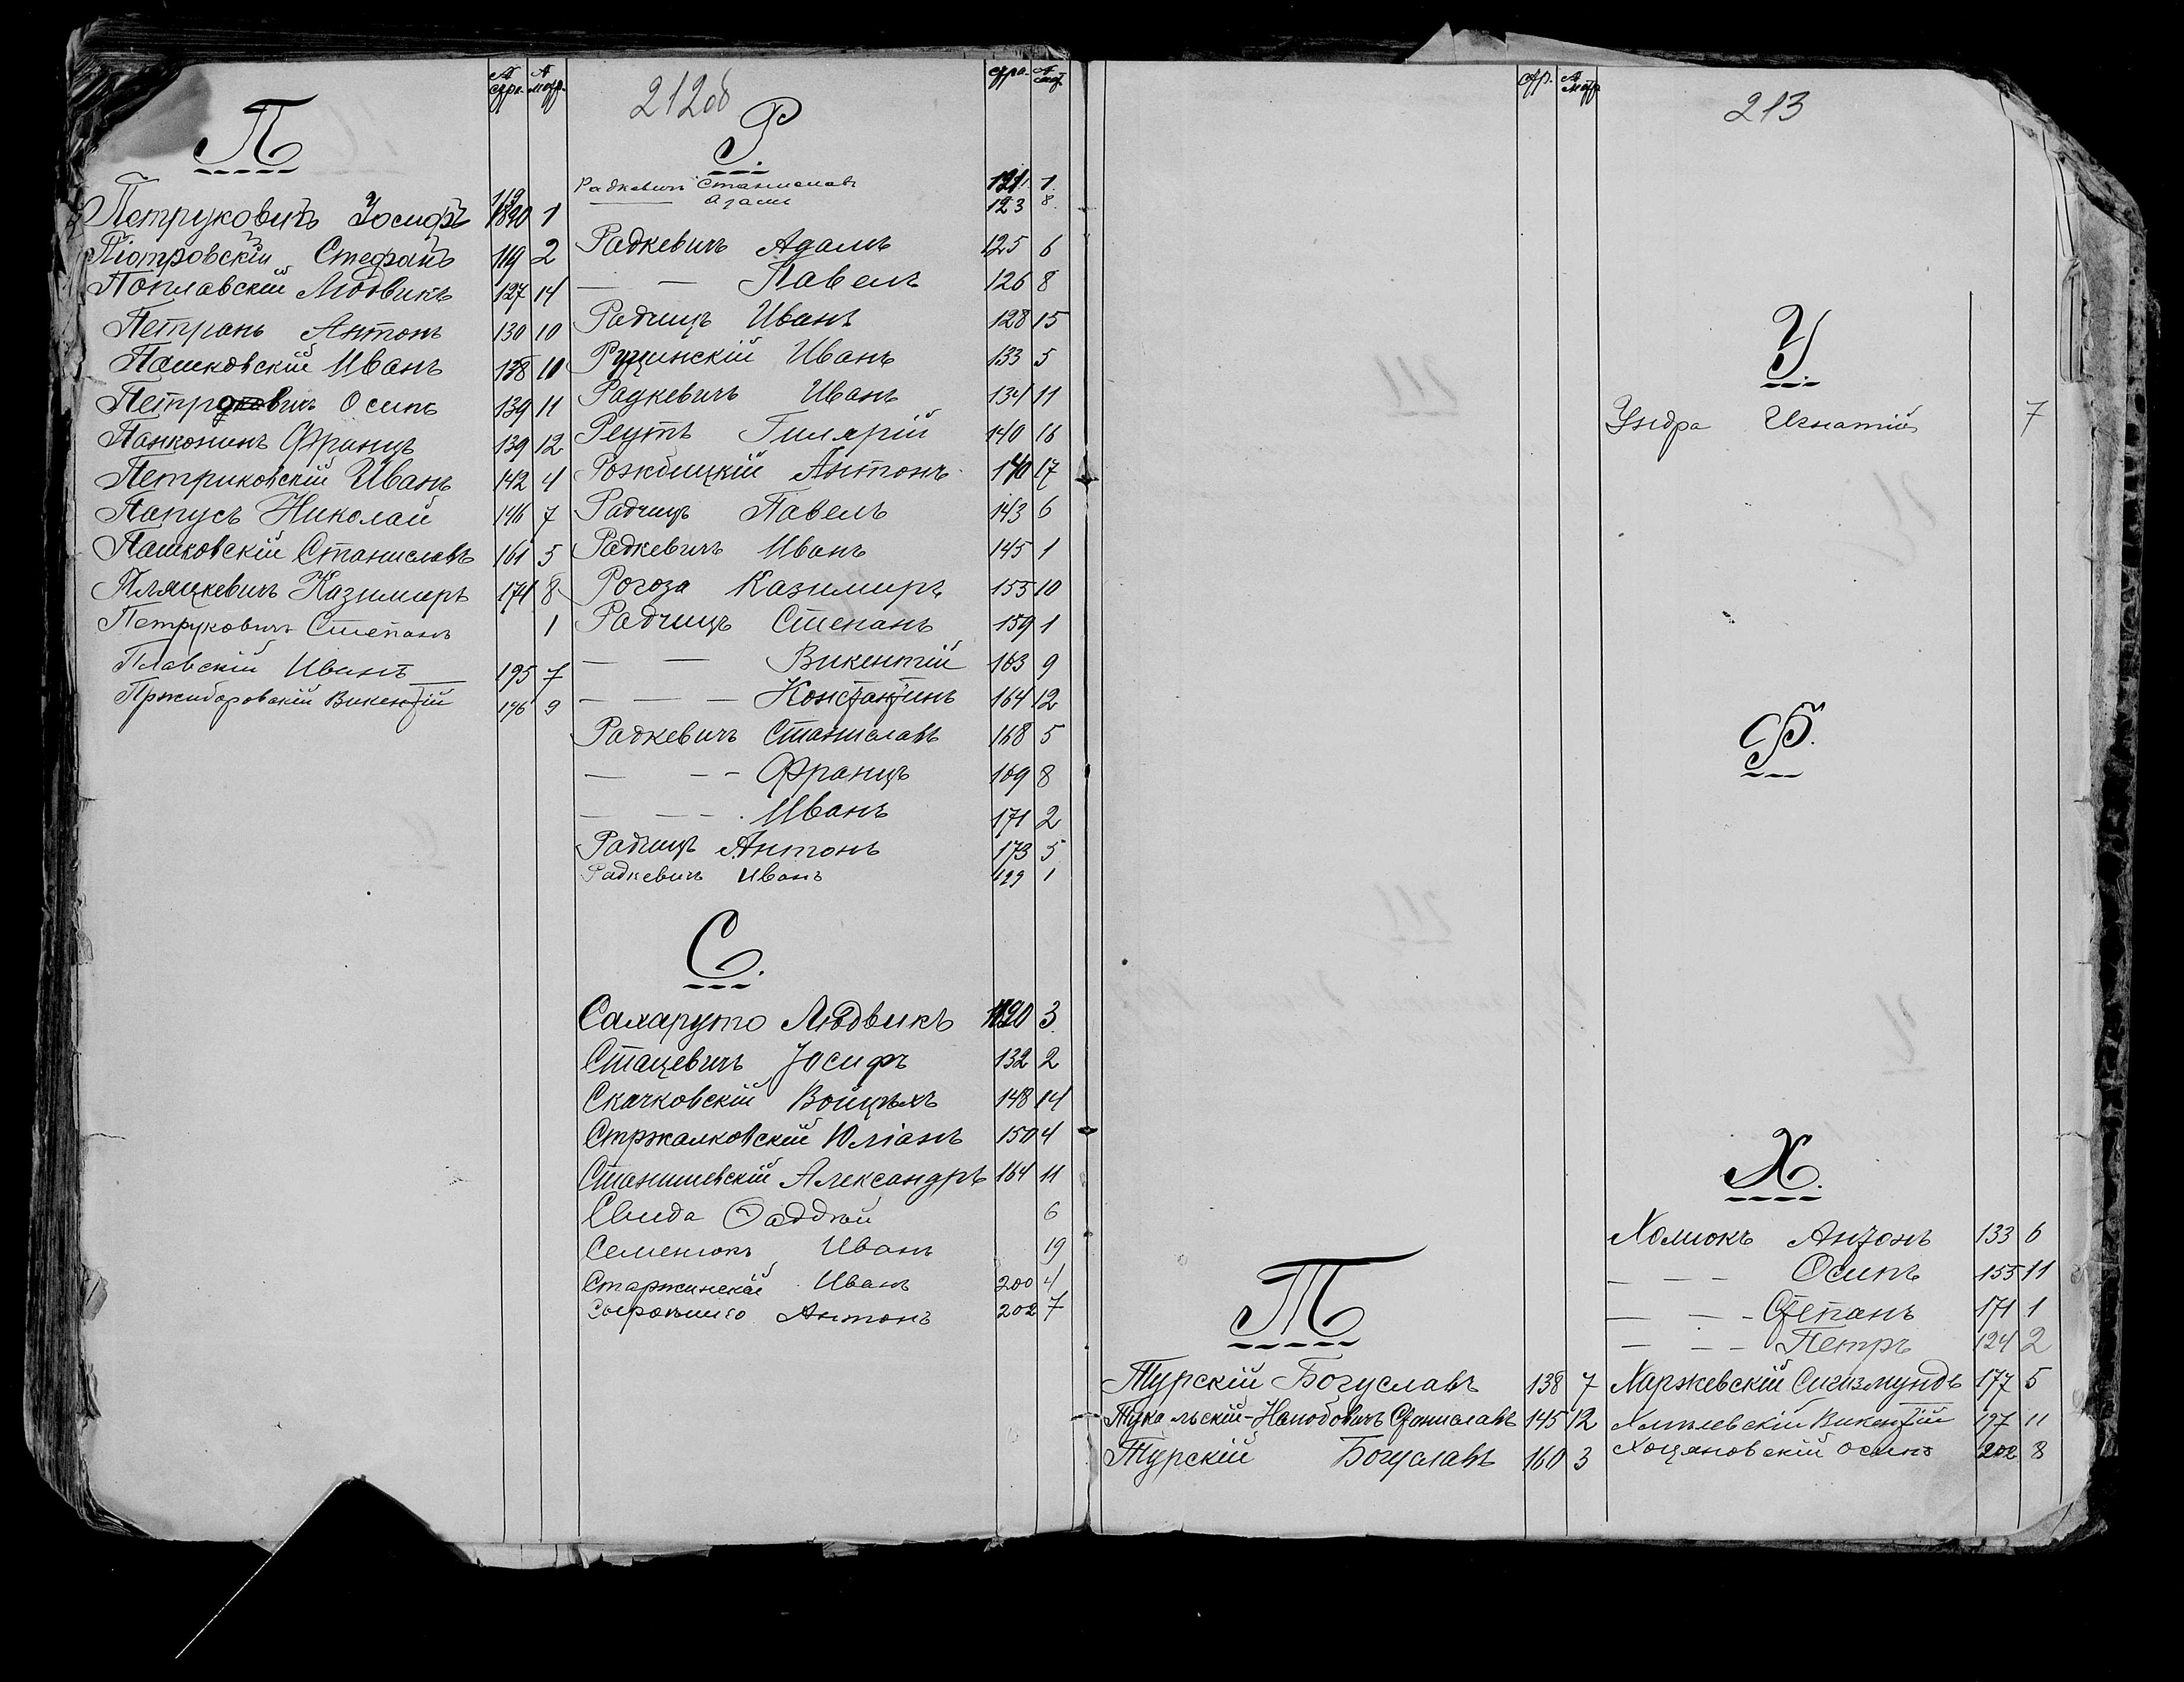 № стра. № матр.
212об
П
Петруковичъ Іосифъ 119 1820 1
Піотровскій Стефанъ 119 2
Поплавскій Людвикъ 127 14
Петрань Антонъ 130 10
Пашковскій Иванъ 138 10
Петруковичъ Осипъ 139 11
Панконинъ Францъ 139 12
Петриковскій Иванъ 142 4
Папусъ Николай 146 7
Пашковскій Станиславъ 161 5
Пляцкевичъ Казимиръ 174 8
Петруковичъ Степанъ 1
Плавскій Иванъ 195 7
Пржиборовскій Викентій 196 9
стра. № мат.
Р.
Радкевичъ Станиславъ 121 1.
— Адамъ 123 8.
Радкевичъ Адамъ 125 6
— — Павелъ 126 8
Радчицъ Иванъ 128 15
Рущинскій Иванъ 133 5
Радкевичъ Иванъ 134 11
Реутъ Гилярій 140 16
Рожбицкій Антонъ 140 17
Радчицъ Павелъ 143 6
Радкевичъ Иванъ 145 1
Рогоза Казимиръ 155 10
Радчицъ Степанъ 159 1
— — Викентій 163 9
— — — Константинъ 164 12
Радкевичъ Станиславъ 168 5
— — – Францъ 169 8
— — – Иванъ 171 2
Радчицъ Антонъ 173 5
Радкевичъ Иванъ 199 1
С.
Сахаруто Людвикъ 120 3
Стацевичъ Іосифъ 132 2
Скачковскій Войцѣхъ 148 14
Стржалковскій Юліанъ 150 4
Станишевскій Александръ 164 11
Свида Ѳаддѣй 6
Семенюкъ Иванъ 19
Старжинскій Иванъ 200 4
Антонъ 202 7
стр. № матр
213
Т
Турскій Богуславъ 138 7
Тукальскій-Нелюбовичъ Станиславъ 145 12
Турскій Богуславъ 160 3
У.
Ундра Игнатій 7
Ф.
Х.
Хомюкъ Антонъ 133 6
— — — Осипъ 155 11
— — – Степанъ 171 1
— — – Петръ 124 2
Харжевскій Сигизмундъ 177 5
Хмѣлевскій Викентій 197 11
Хоцяновскій Осипъ 202 8